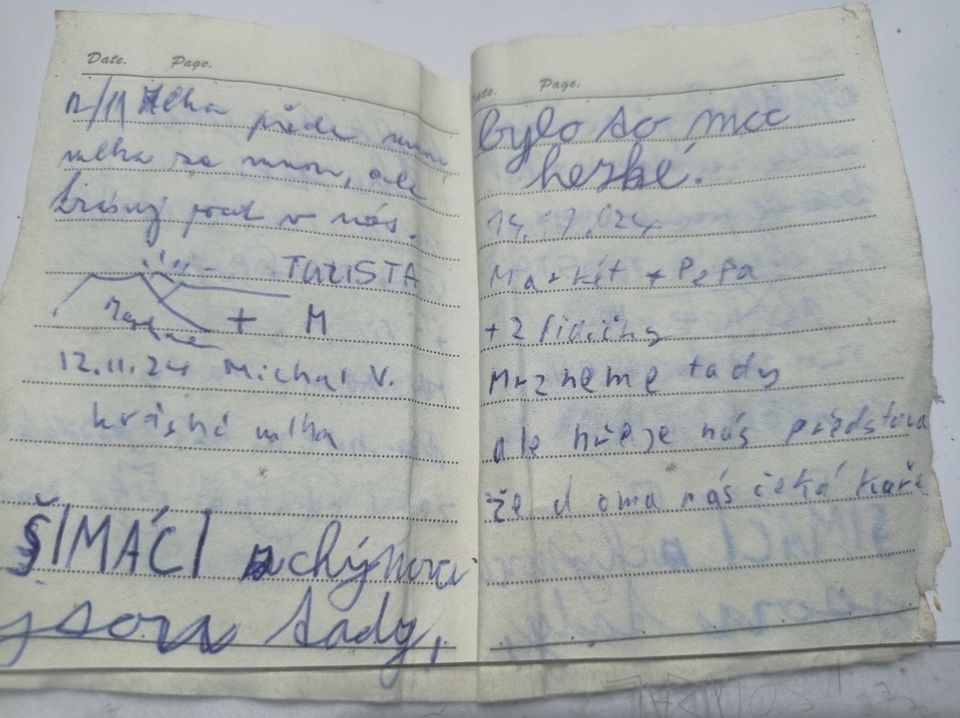 Date. Page.
11/11 Mlha přede mnou
mlha za mnou, ale
krásný pocit v nás.
TURISTA
+ M
12.11.24 Michal V.
krásná mlha
ŠIMÁCI
jsou tady,
Date. Page.
bylo to moc
hezké.
14.11.024
Markét + Pepa
+ 2 lidičky
Mrzneme tady
ale hřeje nás představa
že doma nás čeká kafe